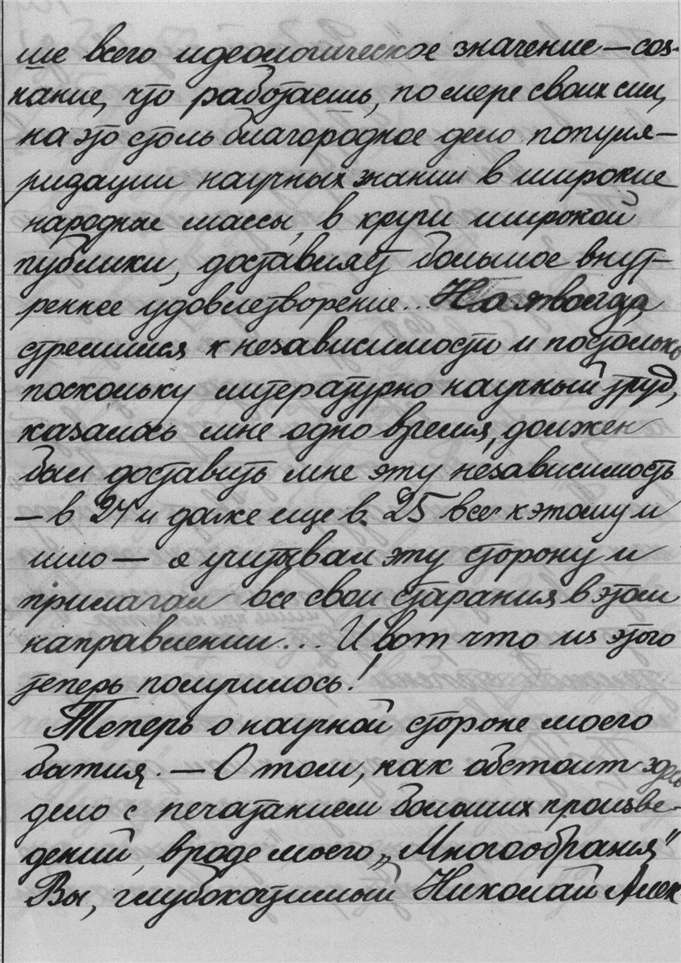 ше всего идеологическое значение — соз-
нание, что работаешь, по мере своих сил,
на это столь благородное дело популя-
ризации научных знании в широкие
народные массы, в круги широкой
публики, доставляет большое внут-
реннее удовлетворение... Но я всегда
стремился к независимости и постольку
поскольку литературно научный труд,
казалось мне одно время, должен
был доставить мне эту независимость
— в 24 и даже еще в 25 все к этому и
шло — я учитывал эту сторону и
прилагал все свои старания в этом
направлении... И вот что из этого
теперь получилось!
Теперь о научной стороне моего
бытия. — О том, как обстоит здесь
дело с печатанием больших произве-
дений, вроде моего „Многообразия"
Вы, глубокочтимый Николай Алек